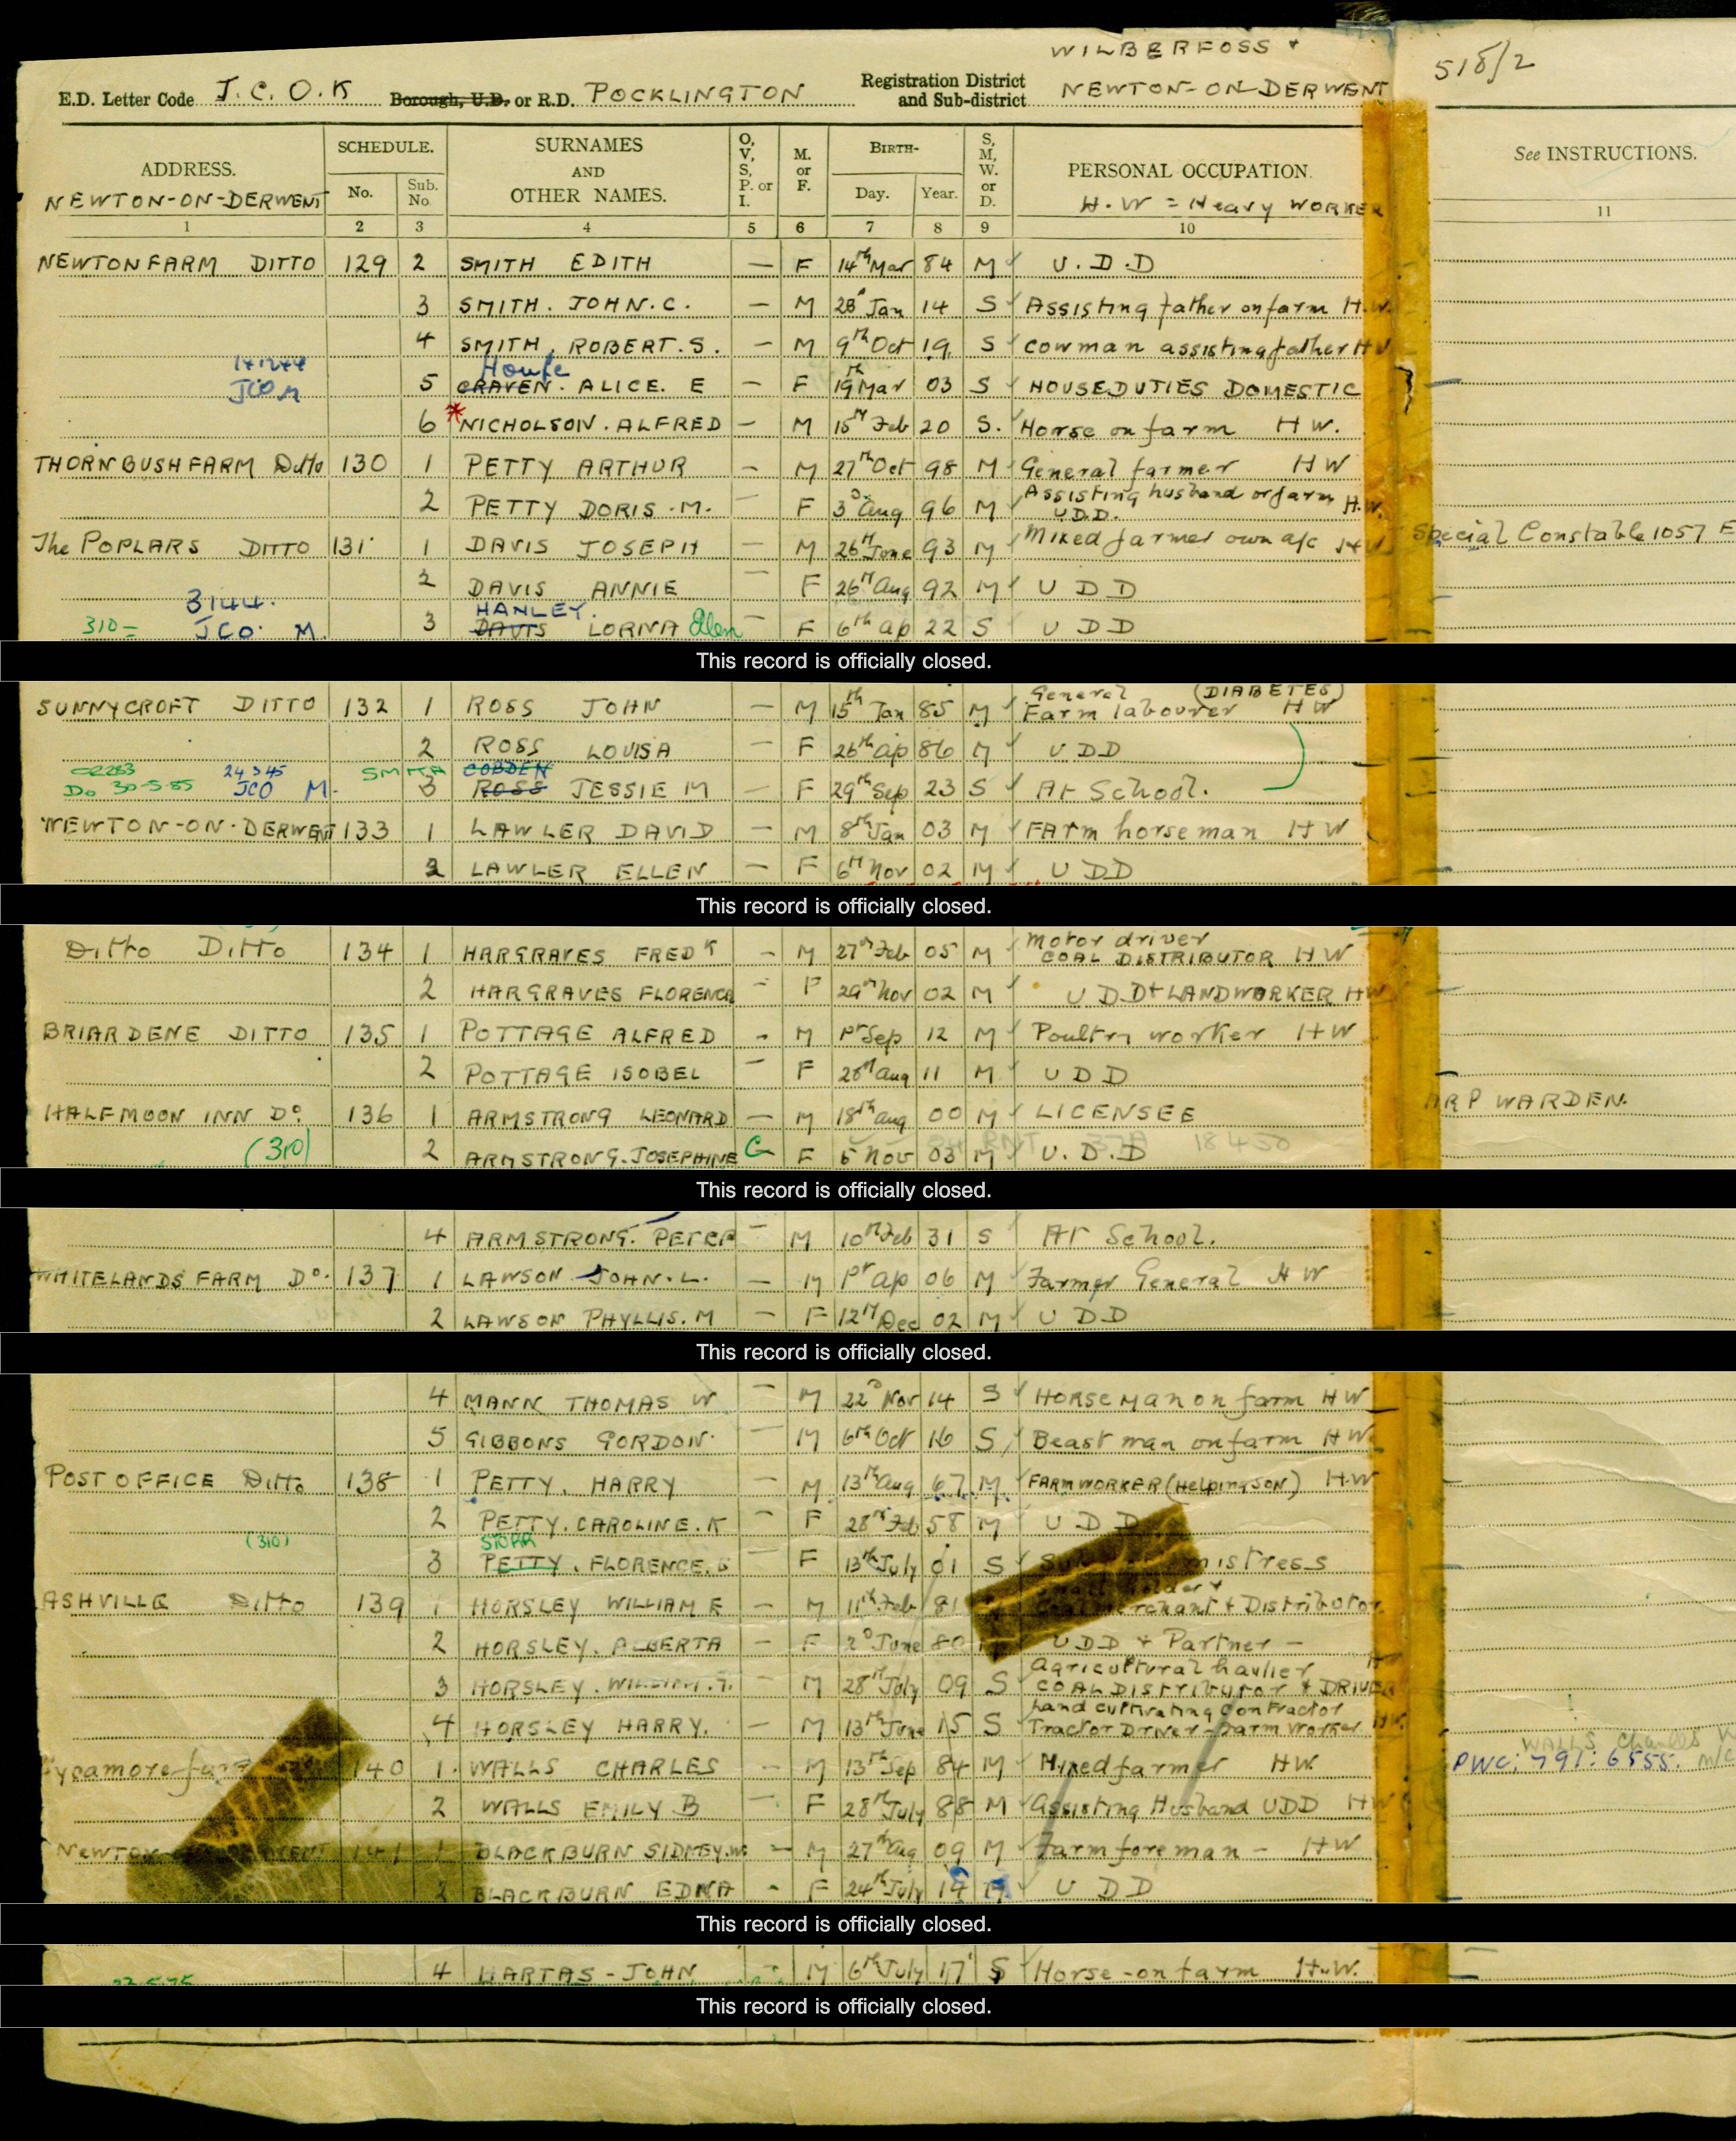 WILBERFOSS +
518/2
E.D. Letter Code J.C.O.K Borough, U.D. or R.D. POCKLINGTON Registration District and Sub-district NEWTON-ON-DERWENT
ADDRESS. SCHEDULE. SURNAMES AND OTHER NAMES. O, V, S, P. or I. M. or F. BIRTH- S, M, W. or D. PERSONAL OCCUPATION. See INSTRUCTIONS.
NEWTON-ON-DERWENT No. Sub. No. Day. Year. H.W = Heavy WORKER
1 2 3 4 5 6 7 8 9 10 11
NEWTON FARM DITTO 129 2 SMITH EDITH — F 14th Mar 84 M U.D.D
3 SMITH. JOHN. C. — M 28 Jan 14 S Assisting father on farm H.W.
4 SMITH. ROBERT. S. — M 9th Oct 19 S Cowman assisting father HW
Houfe
5 CRAVEN. ALICE. E — F 19th Mar 03 S HOUSEDUTIES DOMESTIC
6 * NICHOLSON. ALFRED — M 15th Feb 20 S. Horse on farm H W.
THORNBUSH FARM Ditto 130 1 PETTY ARTHUR — M 27th Oct 98 M General farmer H W
2 PETTY DORIS. M. — F 3d Aug 96 M Assisting husband on farm U.D.D. H.W.
The POPLARS DITTO 131 1 DAVIS JOSEPH — M 26th June 93 M Mixed farmer own a/c HW Special Constable 1057 E
2 DAVIS ANNIE — F 26th Aug 92 M U D D
3144. HANLEY.
310= JCO M. 3 DAVIS LORNA Ellen — F 6th Ap 22 S U D D
This record is officially closed.
SUNNYCROFT DITTO 132 1 ROSS JOHN — M 15th Jan 85 M General Farm labourer (DIABETES) H W
2 ROSS LOUISA — F 26th Ap 86 M U D D
24 3 45 SMITH COBDEN
Do 30-5-85 JCO M. 3 ROSS JESSIE M — F 29th Sep 23 S At School.
NEWTON-ON-DERWENT 133 1 LAWLER DAVID — M 8th Jan 03 M Farm horseman H W
2 LAWLER ELLEN — F 6th Nov 02 M U D D
This record is officially closed.
Ditto Ditto 134 1 HARGRAVES FREDK — M 27th Feb 05 M Motor driver COAL DISTRIBUTOR H W
2 HARGRAVES FLORENCE - F 29th Nov 02 M U D D + LANDWORKER HW
BRIARDENE DITTO 135 1 POTTAGE ALFRED - M 1st Sep 12 M Poultry worker H W
2 POTTAGE ISOBEL — F 28th Aug 11 M U D D
HALFMOON INN Do. 136 1 ARMSTRONG LEONARD — M 18th Aug 00 M LICENSEE ARP WARDEN.
(310) 2 ARMSTRONG. JOSEPHINE G F 5 Nov 03 M U. D. D 18 4 50
This record is officially closed.
4 ARMSTRONG. PETER — M 10th Feb 31 S At School.
WHITELANDS FARM Do. 137 1 LAWSON JOHN. L. — M 1st Ap 06 M Farmer General H W
2 LAWSON PHYLLIS. M — F 12th Dec 02 M U D D
This record is officially closed.
4 MANN THOMAS W — M 22d Nov 14 S HORSEMAN on farm HW
5 GIBBONS GORDON — M 6th Oct 16 S Beast man on farm H W
POST OFFICE Ditto 138 1 PETTY. HARRY — M 13th Aug 67 M FARMWORKER (Helping SON) H.W
2 PETTY. CAROLINE. K — F 28th Feb 58 M U D D
(310) STORR
3 PETTY. FLORENCE. — F 13th July 01 S mistress
ASHVILLE Ditto 139 1 HORSLEY WILLIAM E — M 11th Feb 81 Small holder + Coal Merchant + Distributor
2 HORSLEY. ALBERTA — F 2d June 80 UDD + Partner —
3 HORSLEY. WILLIAM. — M 28th July 09 S Agricultural haulier COAL DISTRIBUTOR & DRIVER
4 HORSLEY HARRY. — M 13th June 15 S Land cultivating Contractor Tractor Driver - Farm Worker HW
WALLS Charles W
Sycamore farm 140 1 WALLS CHARLES — M 13th Sep 84 M Mixed farmer HW. PWC: 791: 6555. m/c
2 WALLS EMILY B — F 28th July 88 M Assisting Husband UDD HW
141 1 BLACKBURN SIDNEY. W. — M 27th Aug 09 M Farm foreman — H W
2 BLACKBURN EDNA - F 24th July 14 M U D D
This record is officially closed.
4 HARTAS - JOHN - M 6th July 17 S Horse - on farm H.W.
This record is officially closed.